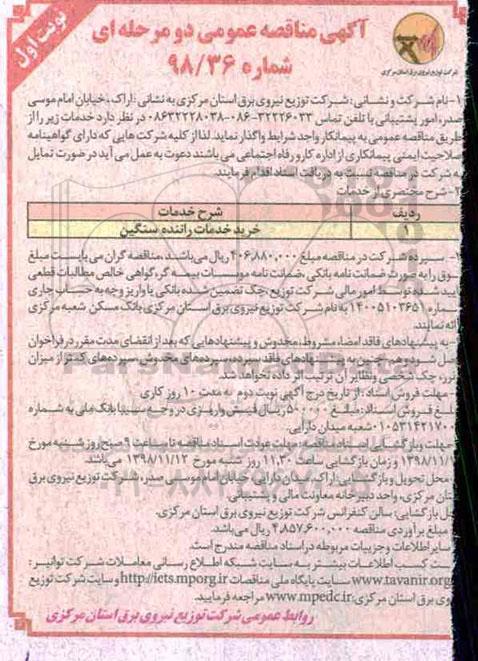 نوبت اول
آگهی مناقصه عمومی دو مرحله ای
شماره ۹۸/۳۶
شرکت توزیع نیروی برق استان مرکزی
۱-نام شرکت و نشانی: شرکت توزیع نیروی برق استان مرکزی به نشانی: اراک، خیابان امام موسی
صدر، امور پشتیبانی با تلفن تماس ۳۲۲۲۶۰۳۳-۰۸۶-۰۸۶۳۲۲۲۸۰۳۸ در نظر دارد خدمات زیر را از
طریق مناقصه عمومی به پیمانکار واجد شرایط واگذار نماید. لذا از کلیه شرکت هایی که دارای گواهینامه
صلاحیت ایمنی پیمانکاری از اداره کار و رفاه اجتماعی می باشند دعوت به عمل می آید در صورت تمایل
به شرکت در مناقصه نسبت به دریافت اسناد اقدام فرمایند.
۲-شرح مختصری از خدمات
ردیف شرح خدمات
۱ خرید خدمات راننده سنگین
۳- سپرده شرکت در مناقصه مبلغ ۴۰۶,۸۸۰,۰۰۰ ریال می باشد، مناقصه گران می بایست مبلغ
فوق را به صورت ضمانت نامه بانکی، ضمانت نامه موسسات بیمه گر، گواهی خالص مطالبات قطعی
تایید شده توسط امور مالی شرکت توزیع، چک تضمین شده بانکی یا واریز وجه به حساب جاری
شماره ۱۴۰۰۵۱۰۳۶۵۱ به نام شرکت توزیع نیروی برق استان مرکزی بانک مسکن شعبه مرکزی
ارائه نمایند.
-به پیشنهادهای فاقد امضاء، مشروط، مخدوش و پیشنهادهایی که بعد از انقضای مدت مقرر در فراخوان
واصل شود و همچنین به پیشنهادهای فاقد سپرده، سپرده های مخدوش، سپرده های کمتر از میزان
مقرر، چک شخصی و نظایر آن ترتیب اثر داده نخواهد شد.
مهلت فروش اسناد: از تاریخ درج آگهی نوبت دوم به مدت ۱۰ روز کاری
مبلغ فروش اسناد: مبلغ ۵۰۰۰۰۰ ریال فیش واریزی در وجه سیبا بانک ملی به شماره
۰۱۰۵۳۱۴۲۱۷۰۰۰ شعبه میدان دارایی.
مهلت و بازگشایی اسناد مناقصه: مهلت عودت اسناد مناقصه تا ساعت ۹ صبح روز شنبه مورخ
۱۳۹۸/۱۱/۱۲ و زمان بازگشایی ساعت ۱۱,۳۰ روز شنبه مورخ ۱۳۹۸/۱۱/۱۲ می باشد
محل تحویل و بازگشایی: اراک، میدان دارائی، خیابان امام موسی صدر، شرکت توزیع نیروی برق
استان مرکزی، واحد دبیرخانه معاونت مالی و پشتیبانی.
محل بازگشایی: سالن کنفرانس شرکت توزیع نیروی برق استان مرکزی.
مبلغ برآوردی مناقصه ۴,۸۵۷,۶۰۰,۰۰۰ ریال می باشد.
سایر اطلاعات و جزییات مربوطه در اسناد مناقصه مندرج است.
جهت کسب اطلاعات بیشتر به سایت شبکه اطلاع رسانی معاملات شرکت توانیر:
www.tavanir.org سایت پایگاه ملی مناقصات http://iets.mporg.ir و سایت شرکت توزیع
نیروی برق استان مرکزی: www.mpedc.ir مراجعه فرمایید.
روابط عمومی شرکت توزیع نیروی برق استان مرکزی
ParsNamadData